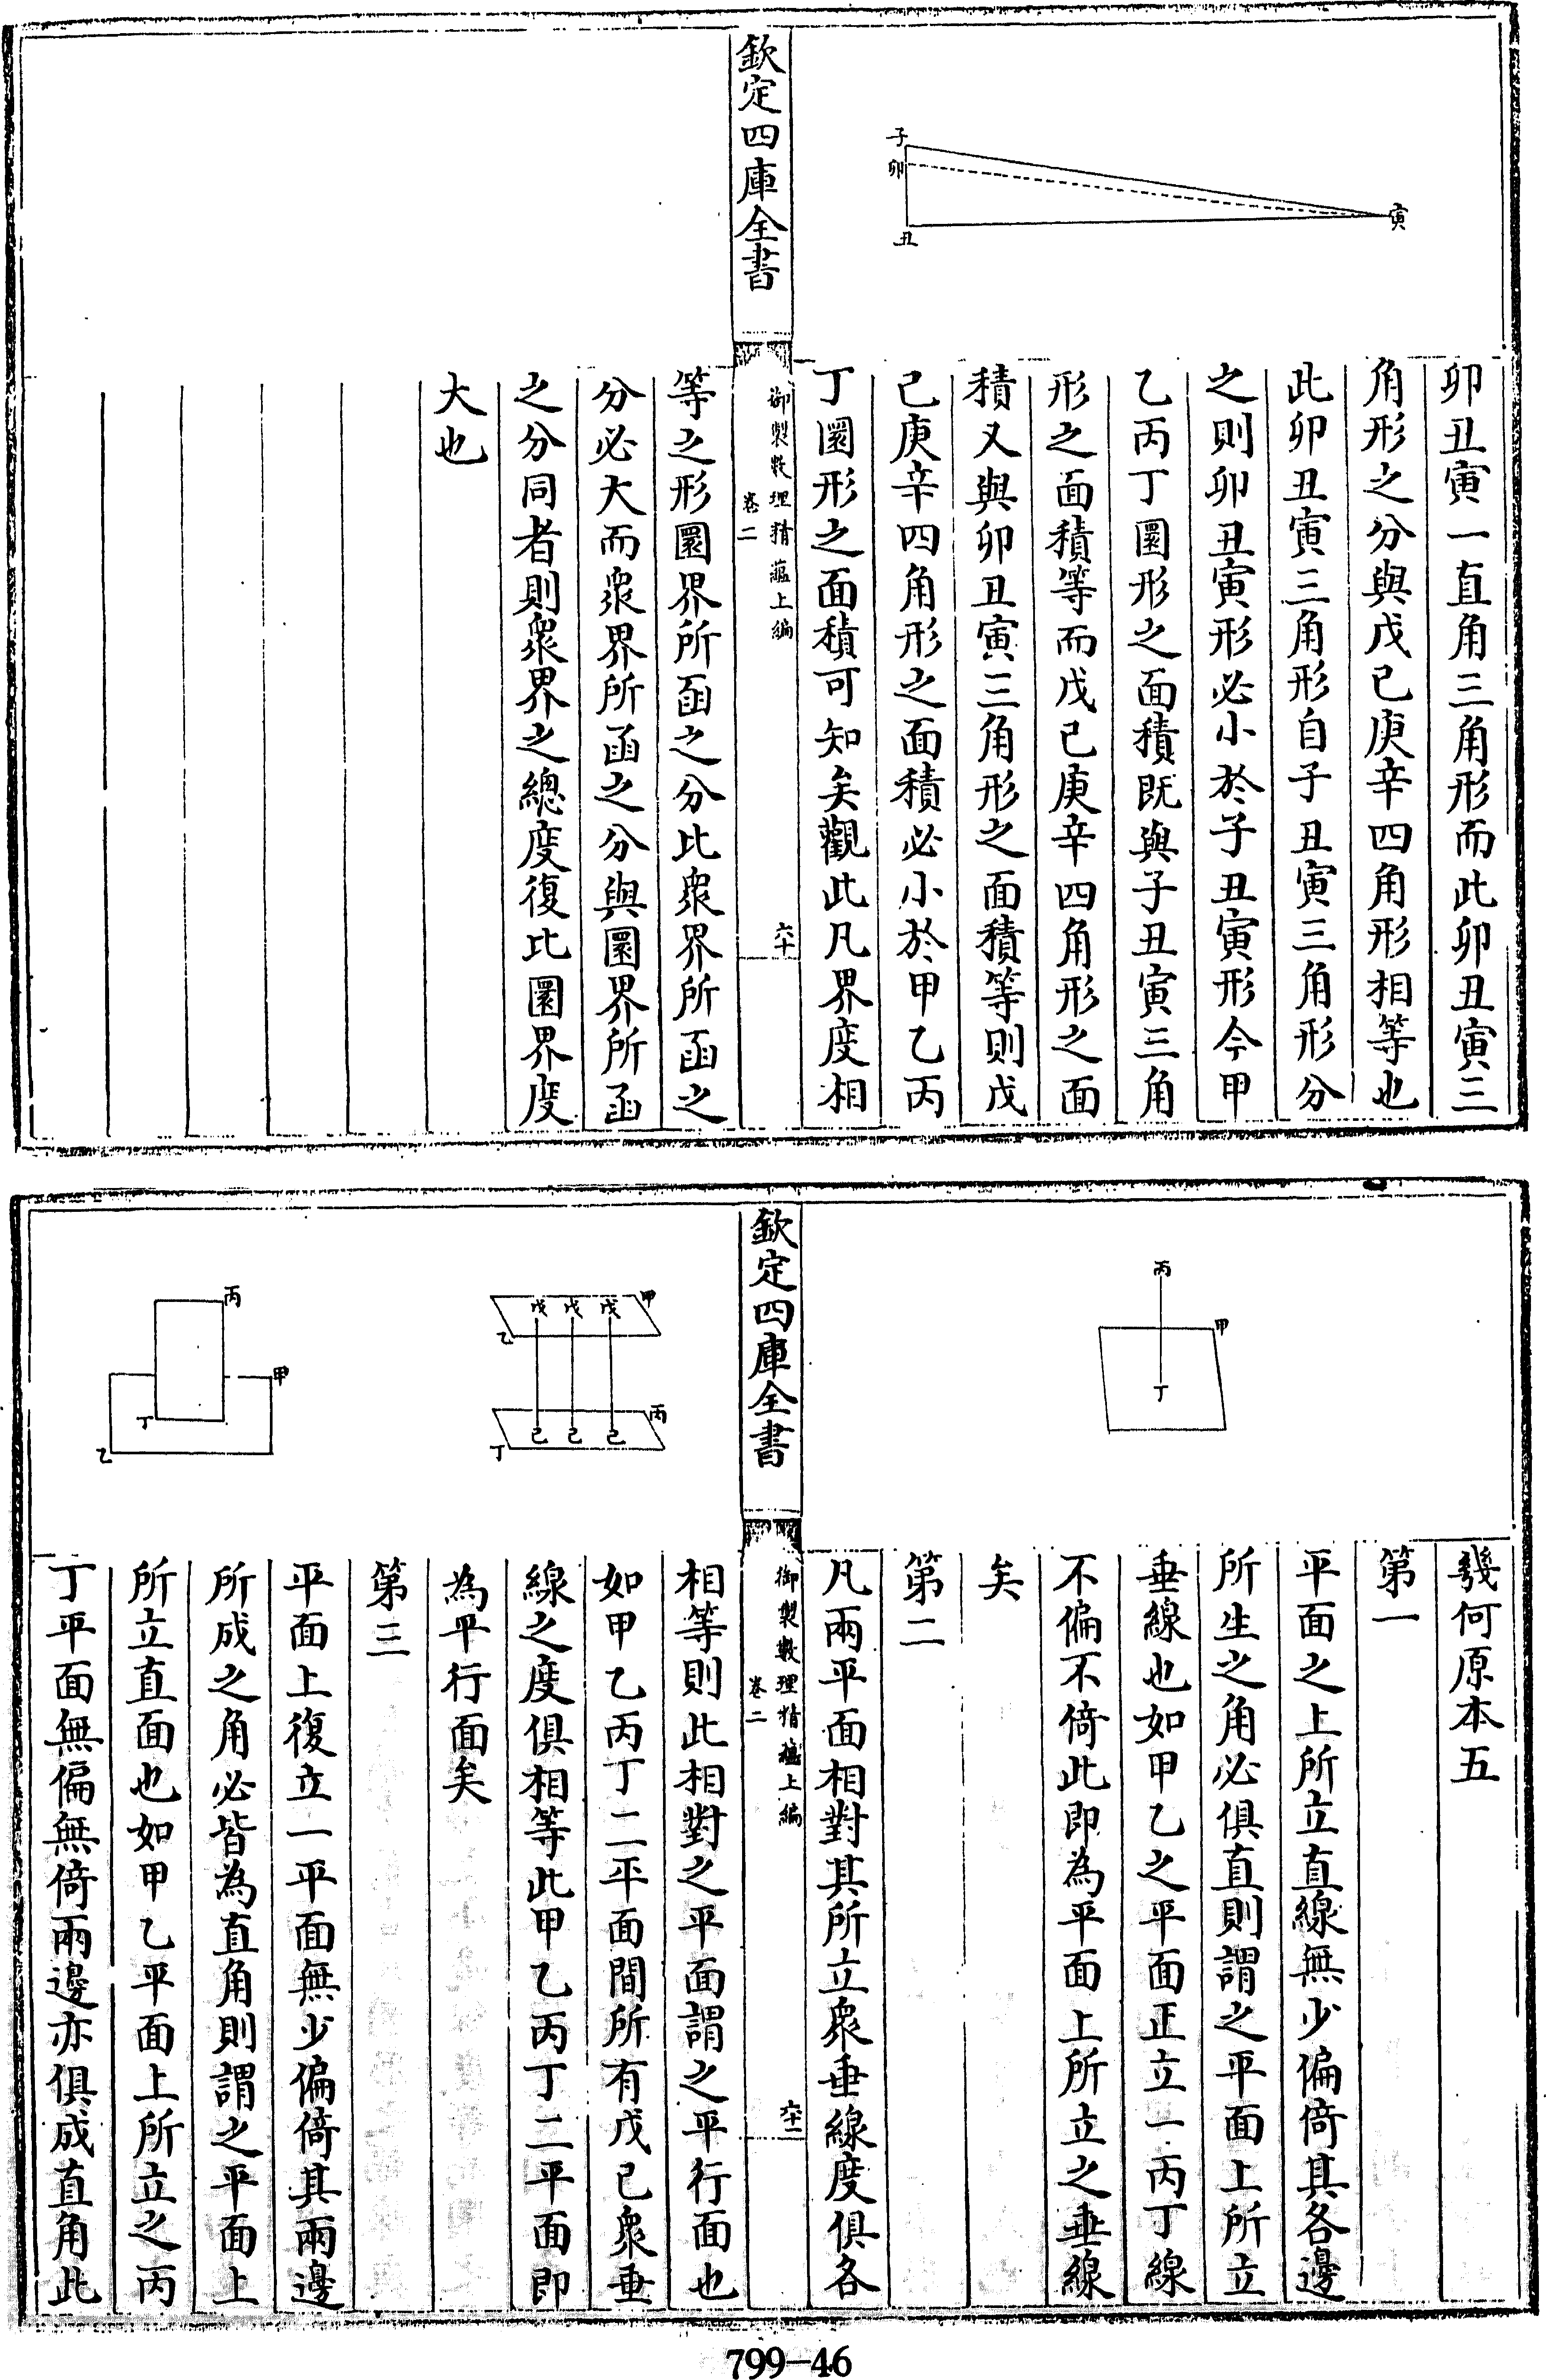 子
卯
丑
寅
卯丑寅一直角三角形而此卯丑寅三
角形之分與戊已庚辛四角形相等也
此卯丑寅三角形自子丑寅三角形分
之則卯丑寅形必小於子丑寅形今甲
乙丙丁圜形之面積既與子丑寅三角
形之面積等而戊已庚辛四角形之面
積又與卯丑寅三角形之面積等則戊
已庚辛四角形之面積必小於甲乙丙
丁圜形之面積可知矣觀此凡界度相
欽定四庫全書
御製數理精蘊上編
卷二
六十
等之形圜界所函之分比衆界所函之
分必大而衆界所函之分與圜界所函
之分同者則衆界之總度復比圜界度
大也
丙
甲
丁
幾何原本五
第一
平面之上所立直線無少偏倚其各邊
所生之角必俱直則謂之平面上所立
垂線也如甲乙之平面正立一丙丁線
不偏不倚此即為平面上所立之垂線
矣
第二
凡兩平面相對其所立衆垂線度俱各
欽定四庫全書
御製數理精蘊上編
卷二
六十一
甲
戊戊戊
乙
丙
己己己
丁
丙
甲
丁
乙
相等則此相對之平面謂之平行面也
如甲乙丙丁二平面間所有戊已衆垂
線之度俱相等此甲乙丙丁二平面即
為平行面矣
第三
平面上復立一平面無少偏倚其兩邊
所成之角必皆為直角則謂之平面上
所立直面也如甲乙平面上所立之丙
丁平面無偏無倚兩邊亦俱成直角此
799-46